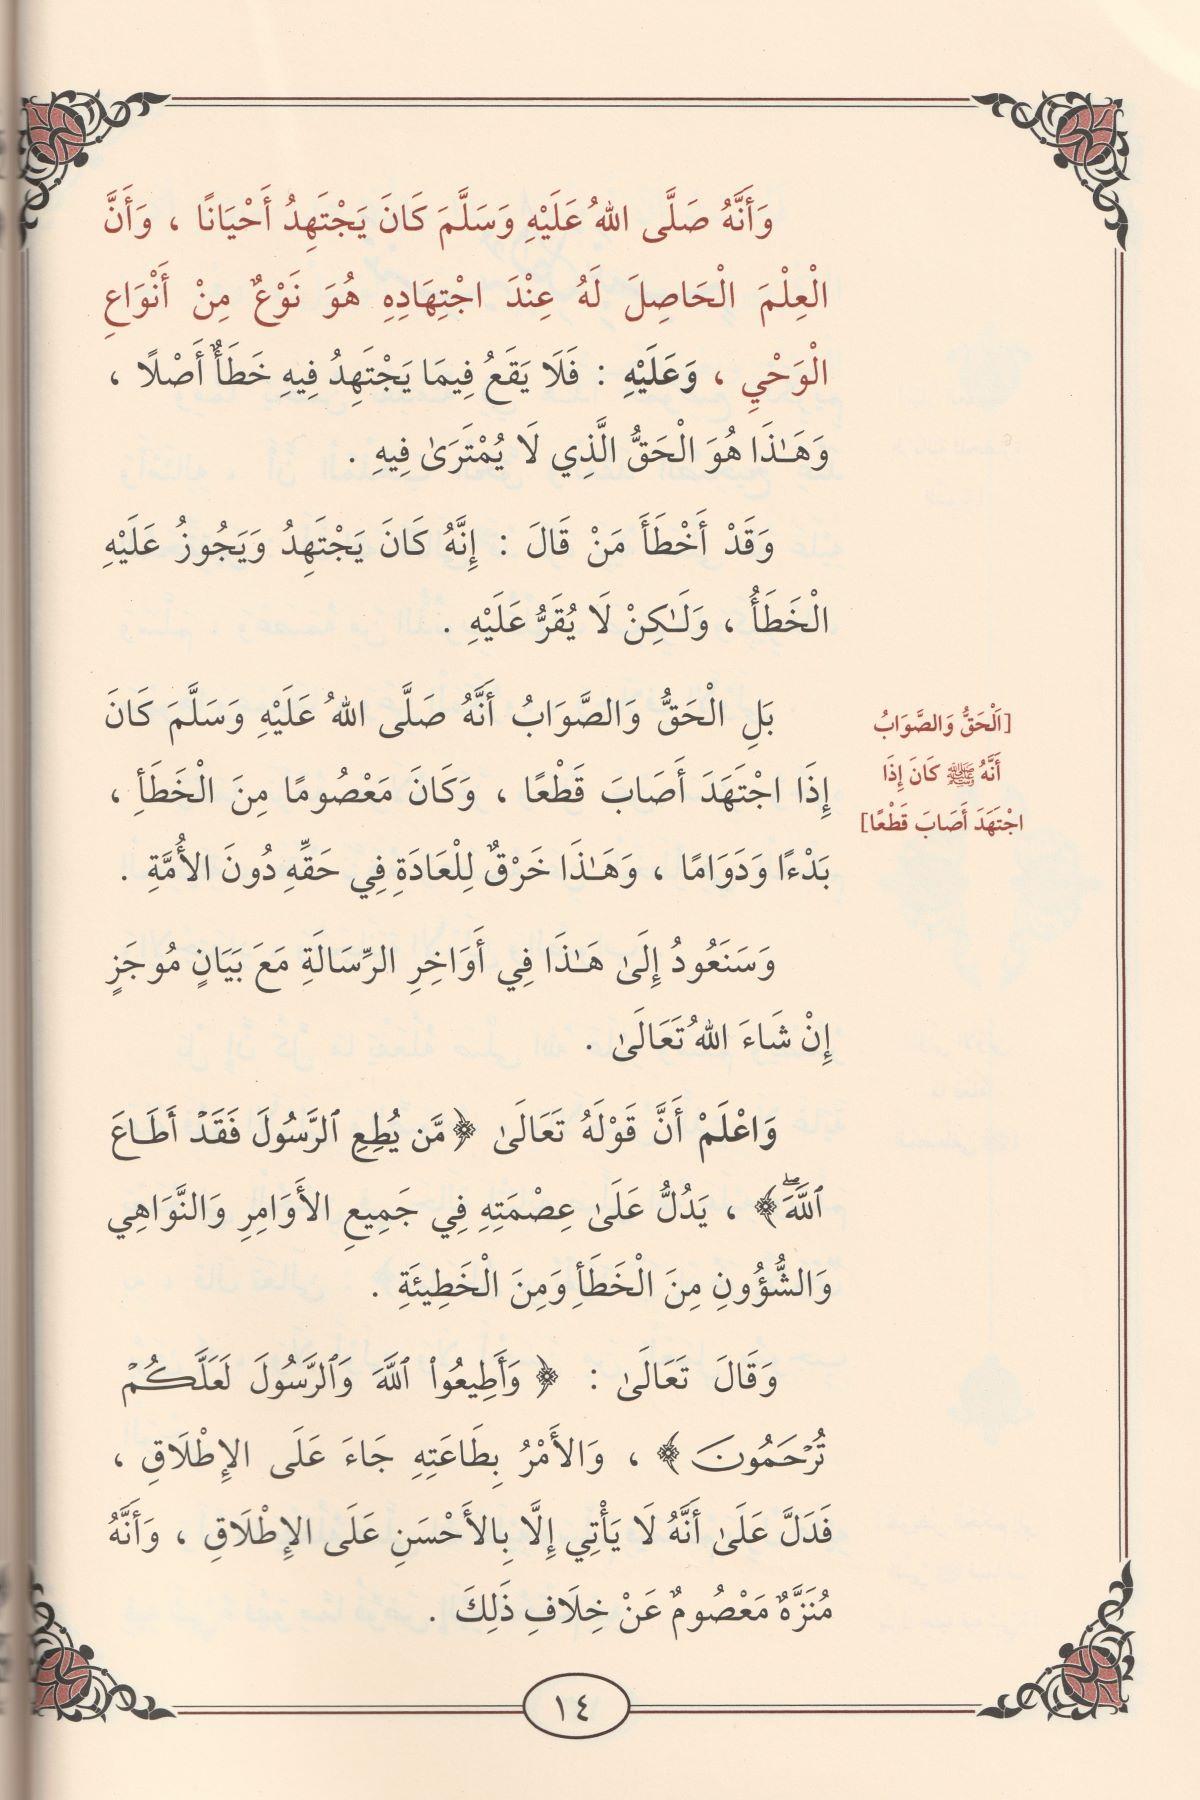 وَأَنَّهُ صَلَّى اللهُ عَلَيْهِ وَسَلَّمَ كَانَ يَجْتَهِدُ أَحْيَانًا ، وَأَنَّ
الْعِلْمَ الْحَاصِلَ لَهُ عِنْدَ اجْتِهَادِهِ هُوَ نَوْعٌ مِنْ أَنْوَاعِ
الْوَحْيِ ، وَعَلَيْهِ : فَلَا يَقَعُ فِيمَا يَجْتَهِدُ فِيهِ خَطَأٌ أَصْلًا ،
وَهَـٰذَا هُوَ الْحَقُّ الَّذِي لَا يُمْتَرَىٰ فِيهِ .
وَقَدْ أَخْطَأَ مَنْ قَالَ : إِنَّهُ كَانَ يَجْتَهِدُ وَيَجُوزُ عَلَيْهِ
الْخَطَأُ ، وَلَـٰكِنْ لَا يُقَرُّ عَلَيْهِ .
بَلِ الْحَقُّ وَالصَّوَابُ أَنَّهُ صَلَّى اللهُ عَلَيْهِ وَسَلَّمَ كَانَ
إِذَا اجْتَهَدَ أَصَابَ قَطْعًا ، وَكَانَ مَعْصُومًا مِنَ الْخَطَأِ ،
بَدْءًا وَدَوَامًا ، وَهَـٰذَا خَرْقٌ لِلْعَادَةِ فِي حَقِّهِ دُونَ الأُمَّةِ .
[اَلْحَقُّ وَالصَّوَابُ
أَنَّهُ ﷺ كَانَ إِذَا
اجْتَهَدَ أَصَابَ قَطْعًا]
وَسَنَعُودُ إِلَىٰ هَـٰذَا فِي أَوَاخِرِ الرِّسَالَةِ مَعَ بَيَانٍ مُوجَزٍ
إِنْ شَاءَ اللهُ تَعَالَىٰ .
وَاعْلَمْ أَنَّ قَوْلَهُ تَعَالَىٰ ﴿مَّن يُطِعِ ٱلرَّسُولَ فَقَدْ أَطَاعَ
ٱللَّهَۖ﴾ ، يَدُلُّ عَلَىٰ عِصْمَتِهِ فِي جَمِيعِ الأَوَامِرِ وَالنَّوَاهِي
وَالشُّؤُونِ مِنَ الْخَطَأِ وَمِنَ الْخَطِيئَةِ .
وَقَالَ تَعَالَىٰ : ﴿وَأَطِيعُواْ ٱللَّهَ وَٱلرَّسُولَ لَعَلَّكُمْ
تُرْحَمُونَ﴾ ، وَالأَمْرُ بِطَاعَتِهِ جَاءَ عَلَى الإِطْلَاقِ ،
فَدَلَّ عَلَىٰ أَنَّهُ لَا يَأْتِي إِلَّا بِالأَحْسَنِ عَلَى الإِطْلَاقِ ، وَأَنَّهُ
مُنَزَّهٌ مَعْصُومٌ عَنْ خِلَافِ ذَلِكَ .
١٤